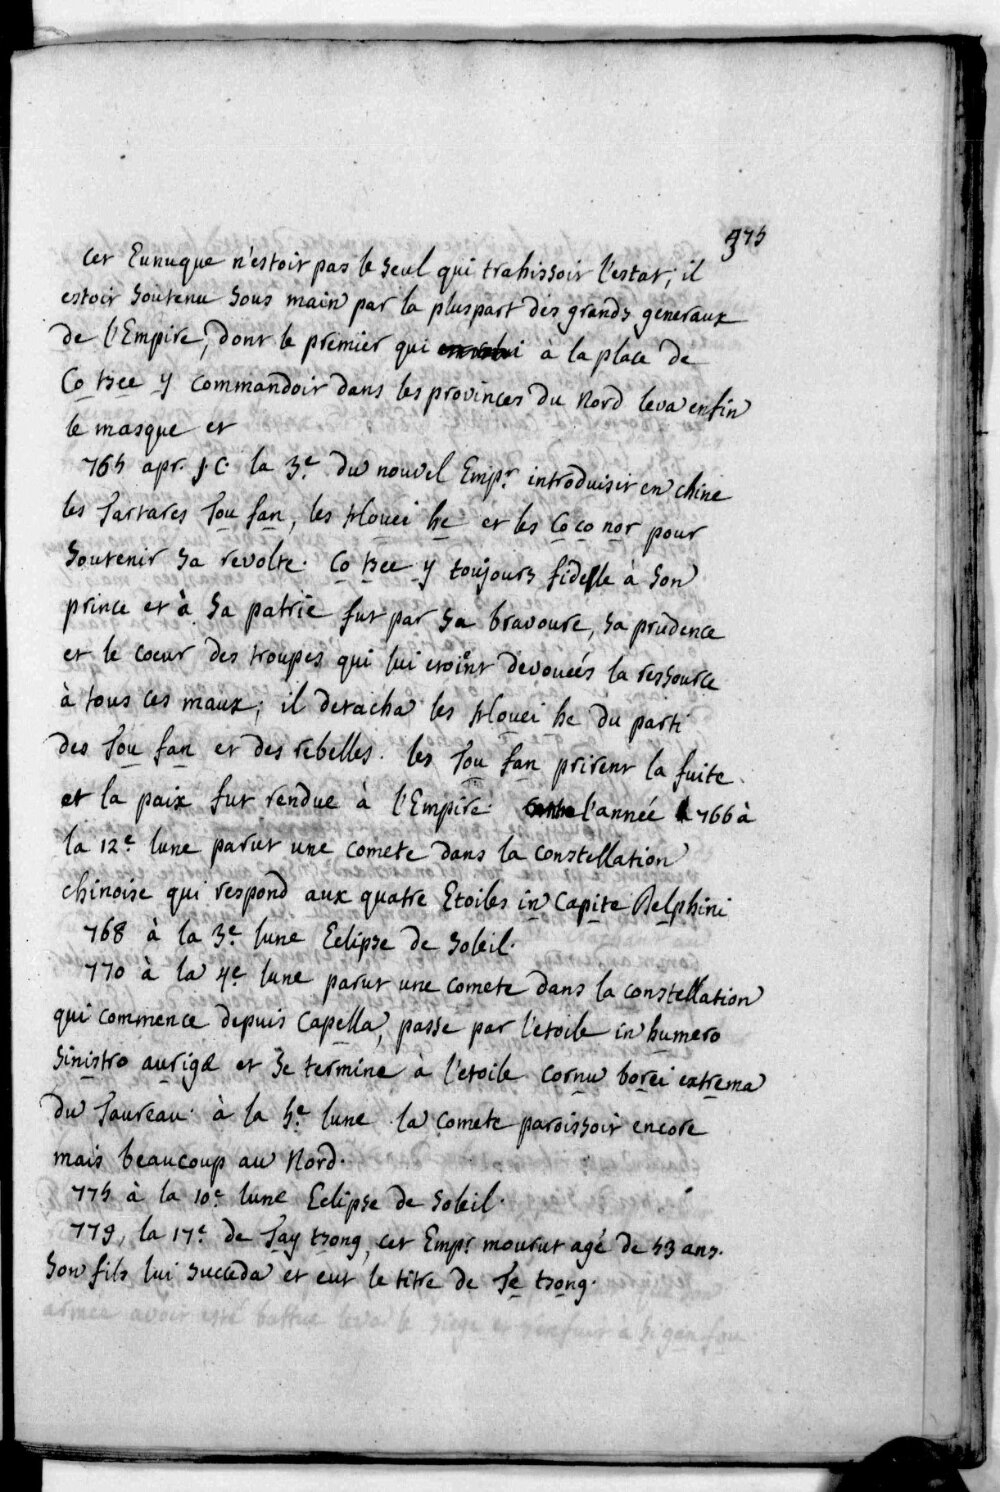 375
Cet Eunuque n'estoit pas le seul qui trahissoit l'estat; il
estoit soutenu sous main par la pluspart des grands generaux
de l'Empire, dont le premier qui à la place de
Co tsee y commandoit dans les provinces du Nord leva enfin
le masque et
765 apr. J. C. la 3e. du nouvel Empr. introduisit en chine
les Tartares Tou fan, les Houei he et les Co co nor pour
soutenir sa revolte. Co tsee y toujours fidelle à son
prince et à sa patrie fut par sa bravoure, sa prudence
et le coeur des troupes qui lui etoint devouées la ressource
à tous ces maux; il detacha les Houei he du parti
des Tou fan et des rebelles. les Tou fan prirent la fuite
et la paix fut rendue à l'Empire. l'année 766 à
la 12e lune parut une comete dans la constellation
chinoise qui respond aux quatre Etoiles in Capite Delphini
768 à la 3e lune Eclipse de Soleil.
770 à la 4e lune parut une comete dans la constellation
qui commence depuis Capella, passe par l'etoile in humero
sinistro aurigæ et se termine à l'etoile cornu borei extrema
du Taureau. à la 5e lune la comete paroissoit encore
mais beaucoup au Nord.
775 à la 10e lune Eclipse de Soleil.
779, la 17e de Tay tsong, cet Empr mourut agé de 53 ans.
Son fils lui succeda et eut le titre de Te tsong.
armée avoit esté battue leva le siege et s'enfuit à Si gan fou